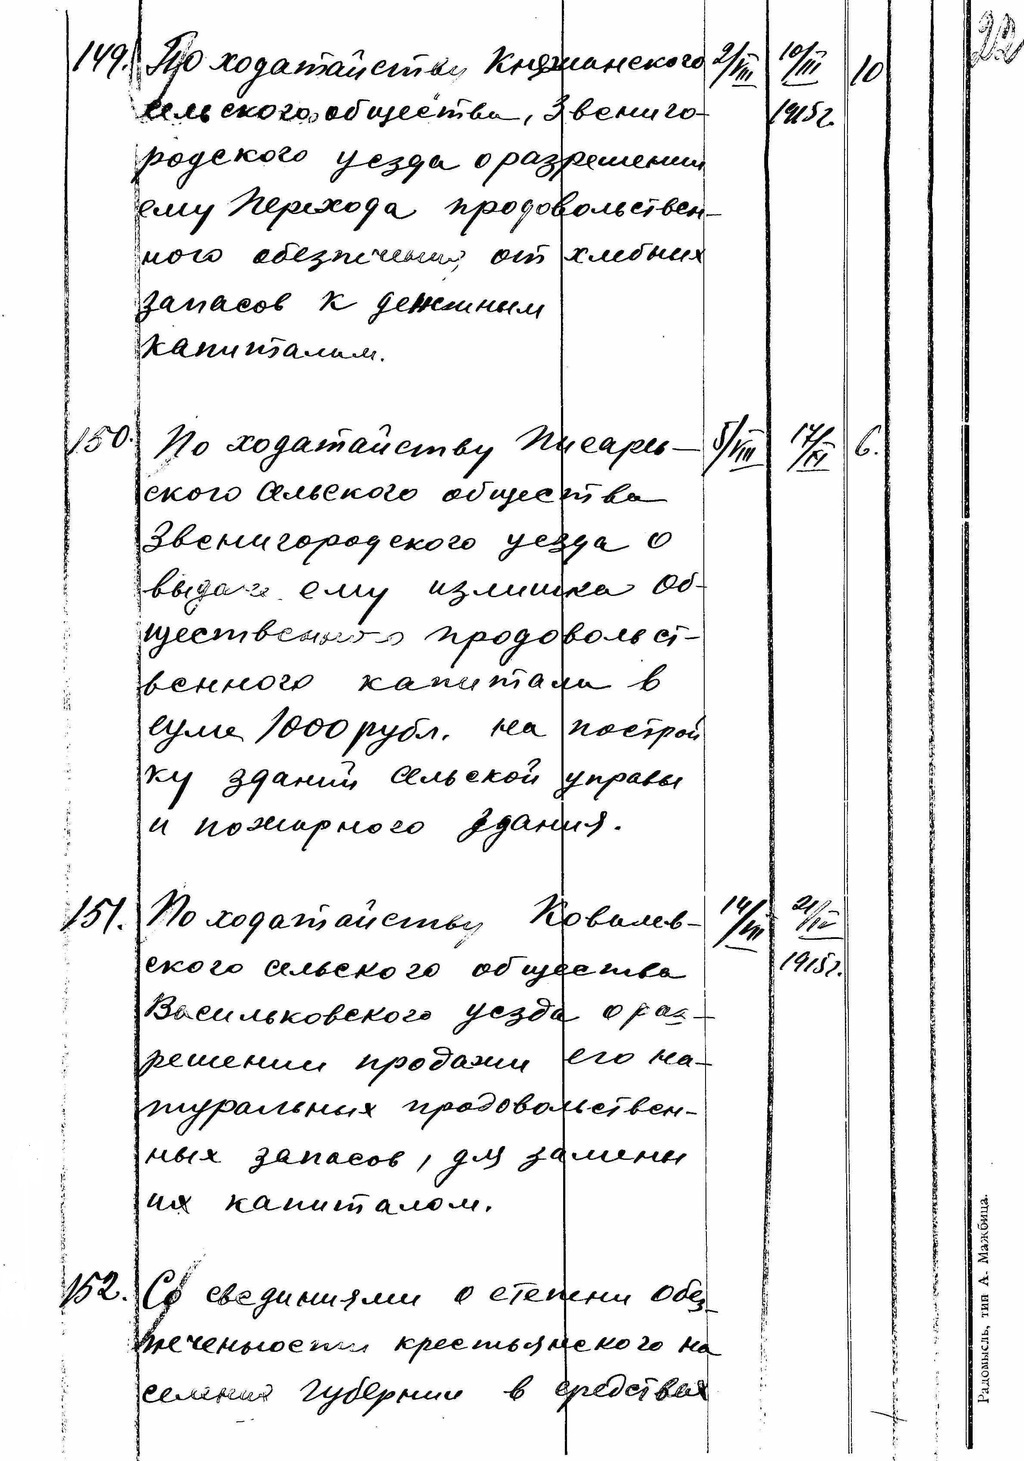 22
149. По ходатайству Княжанского 2/VIII 10/III 10
сельского общества, Звениго- 1915г.
родского уезда о разрешении
ему перехода продовольствен-
ного обезпечения от хлебных
запасов к денежным
капиталам.
150. По ходатайству Писарев- 5/VIII 17/XI 6.
ского сельского общества
Звенигородского уезда о
выдаче ему излишка об-
щественного продовольст-
венного капитала в
суме 1000 рубл. на построй
ку зданий сельской управы
и пожарного здания.
151. По ходатайству Ковалев- 14/VIII 21/IV
ского сельского общества 1915г.
Васильковского уезда о раз-
решении продажи его на-
туральных продовольствен-
ных запасов, для замены
их капиталом.
152. Со сведениями о степени обез-
печенности крестьянского на
селения губернии в средствах
Радомысль, тип А. Мажбица.